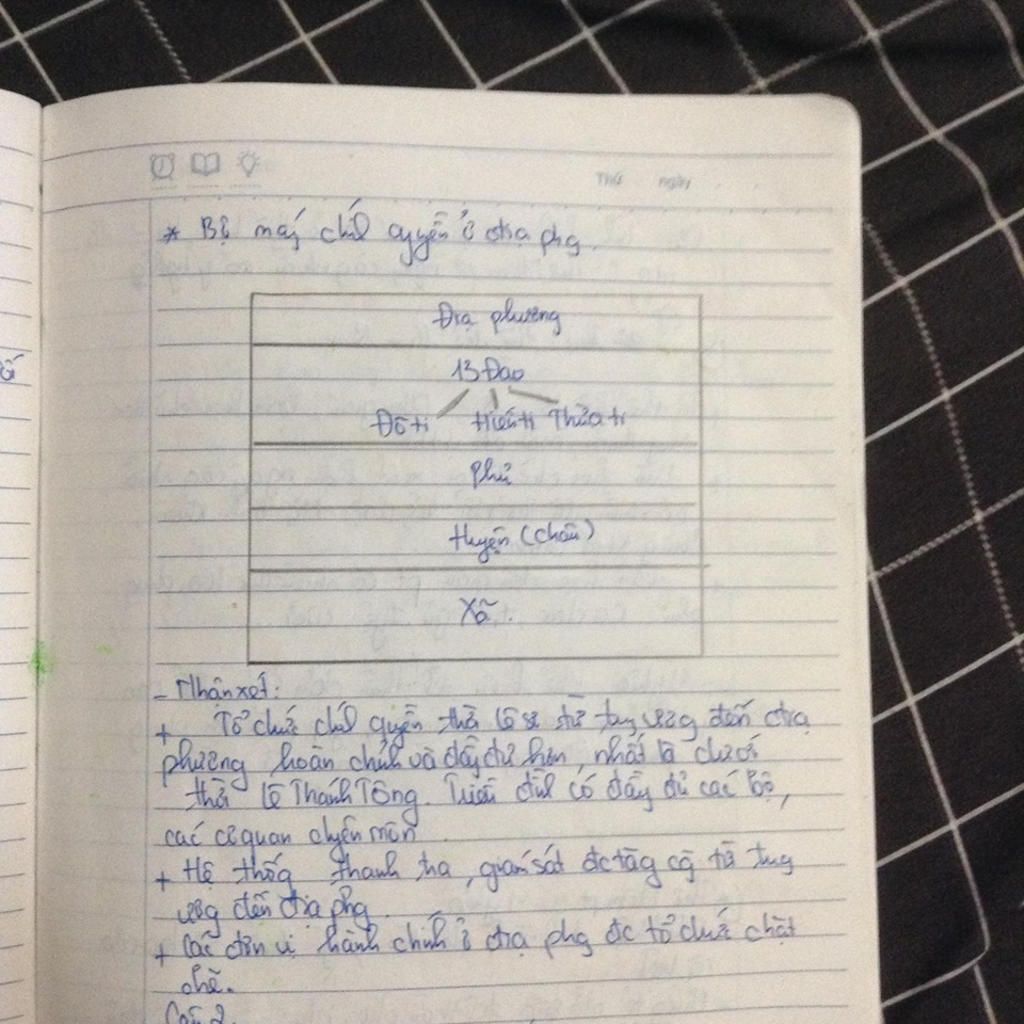 Thứ ngày
* Bộ máy chíh quyền ở địa phg.
Địa phương
13 Đạo
Đô ti Hiến ti Thừa ti
Phủ
Huyện (châu)
Xã.
- Nhận xét:
+ Tổ chức chíh quyền thời Lê sơ từ tug ươg đến địa
phương hoàn chỉnh và đầy đủ hơn, nhất là dưới
thời Lê Thánh Tông. Triều đìh có đầy đủ các bộ,
các cơ quan chyên môn
+ Hệ thốg thanh tra, giám sát đc tăg cg từ tug
ươg đến địa phg.
+ Các đơn vị hành chính ở địa phg đc tổ chức chặt
chẽ.
Câu 2.